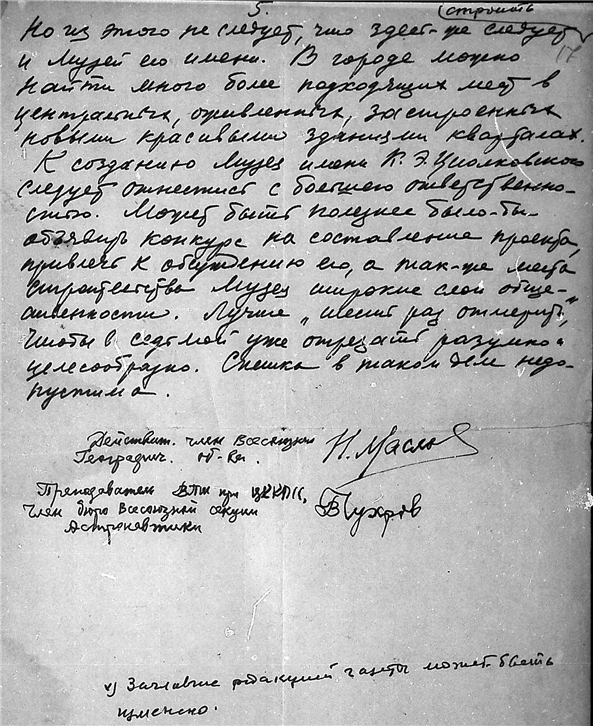 5.
строить
Но из этого не следует, что здесь-же следует
17
и Музей его имени. В городе можно
найти много более подходящих мест в
центральных, оживленных, застроенных
новыми красивыми зданиями кварталах.
К созданию Музея имени К.Э. Циолковского
следует отнестись с большею ответственно-
стью. Может быть полезнее было-бы
объявить конкурс на составление проекта,
привлечь к обсуждению его, а так-же места
строительства Музея широкие слои обще-
ственности. Лучше „шесть раз отмерить",
чтобы в седьмой уже отрезать разумно и
целесообразно. Спешка в таком деле недо-
пустима.
Действит. член Всесоюзн
Географич. об-ва.
Н. Маслов
Преподаватель ВПШ при ЦККПСС,
член бюро Всесоюзной секции
Астронавтики
Пухров
x) Заглавие редакцией газеты может быть
изменено.